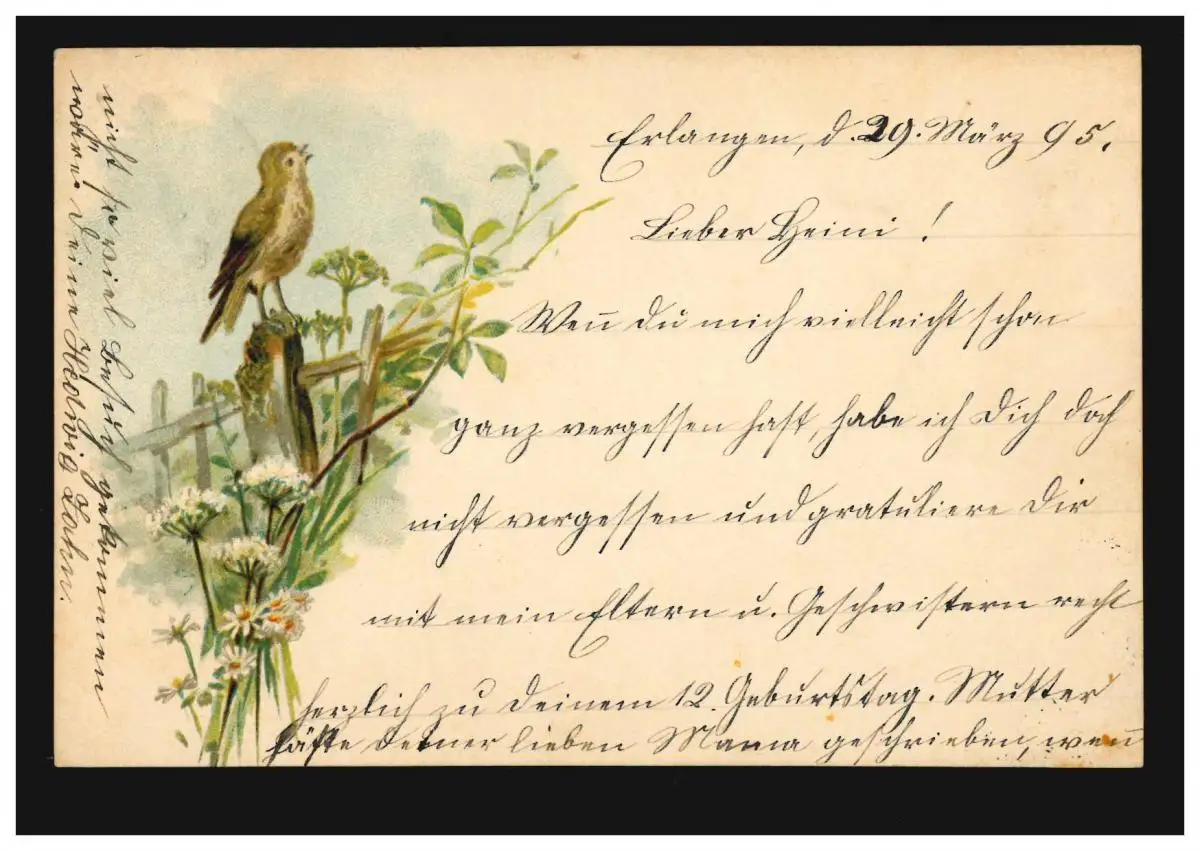 Erlangen, d. 29. März 95.
Lieber Heini!
Wen̄ du mich vielleicht schon
ganz vergessen hast, habe ich Dich doch
nicht vergessen und gratuliere Dir
mit mein Eltern u. Geschwistern recht
herzlich zu Deinem 12. Geburtstag. Mutter
hätte Deiner lieben Mama geschrieben, wen̄
nicht so viel Besuch gekommen
wäre. Deine Hedwig